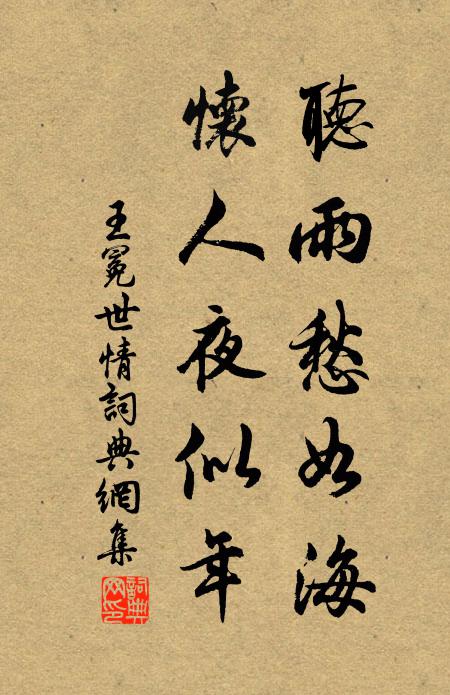 聽雨愁如海
懷人夜似年
王冕世情詞典網集
詞典
网印